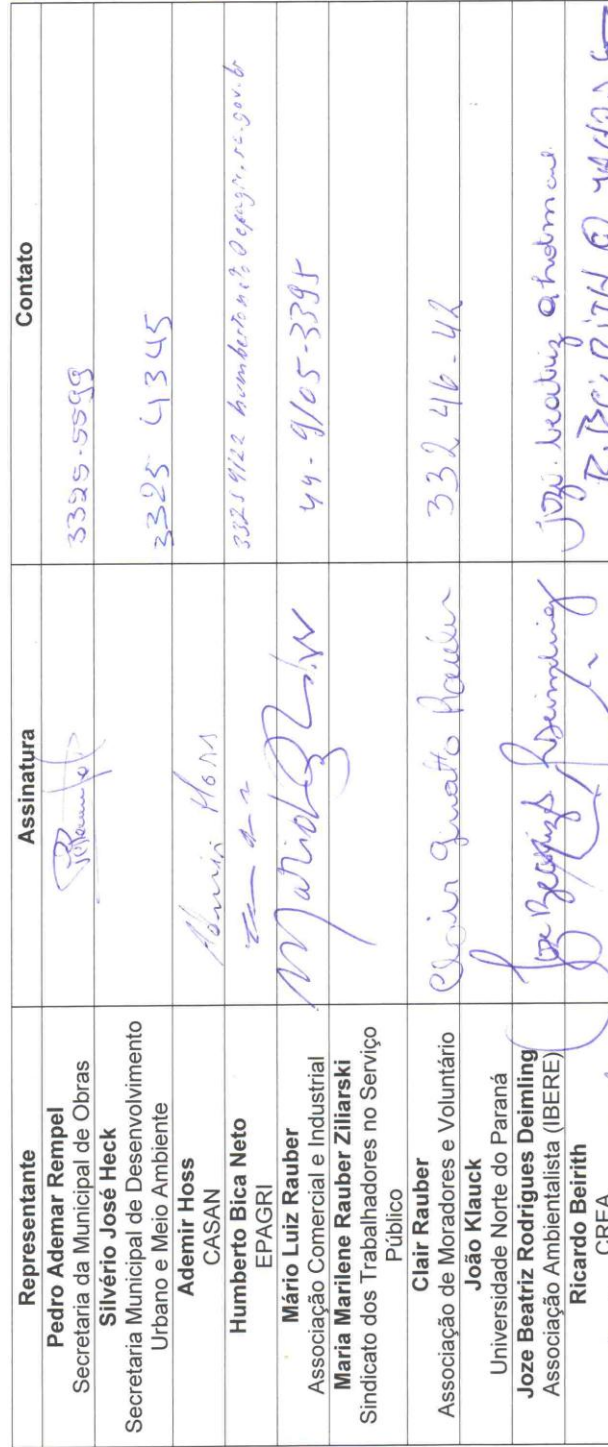 Representante Assinatura Contato
Pedro Ademar Rempel
Secretaria da Municipal de Obras
3325-5599
Silvério José Heck
Secretaria Municipal de Desenvolvimento
Urbano e Meio Ambiente
3325 4345
Ademir Hoss
CASAN
Ademir Hoss
Humberto Bica Neto
EPAGRI
33259122 humbertoneto@epagri.sc.gov.br
Mário Luiz Rauber
Associação Comercial e Industrial
49-9105-3395
Maria Marilene Rauber Ziliarski
Sindicato dos Trabalhadores no Serviço
Público
Clair Rauber
Associação de Moradores e Voluntário
Clair Rauber
332 46-42
João Klauck
Universidade Norte do Paraná
Joze Beatriz Rodrigues Deimling
Associação Ambientalista (IBERE)
Joze Beatriz Deimling
joze.beatriz@hotmail
Ricardo Beirith
CREA